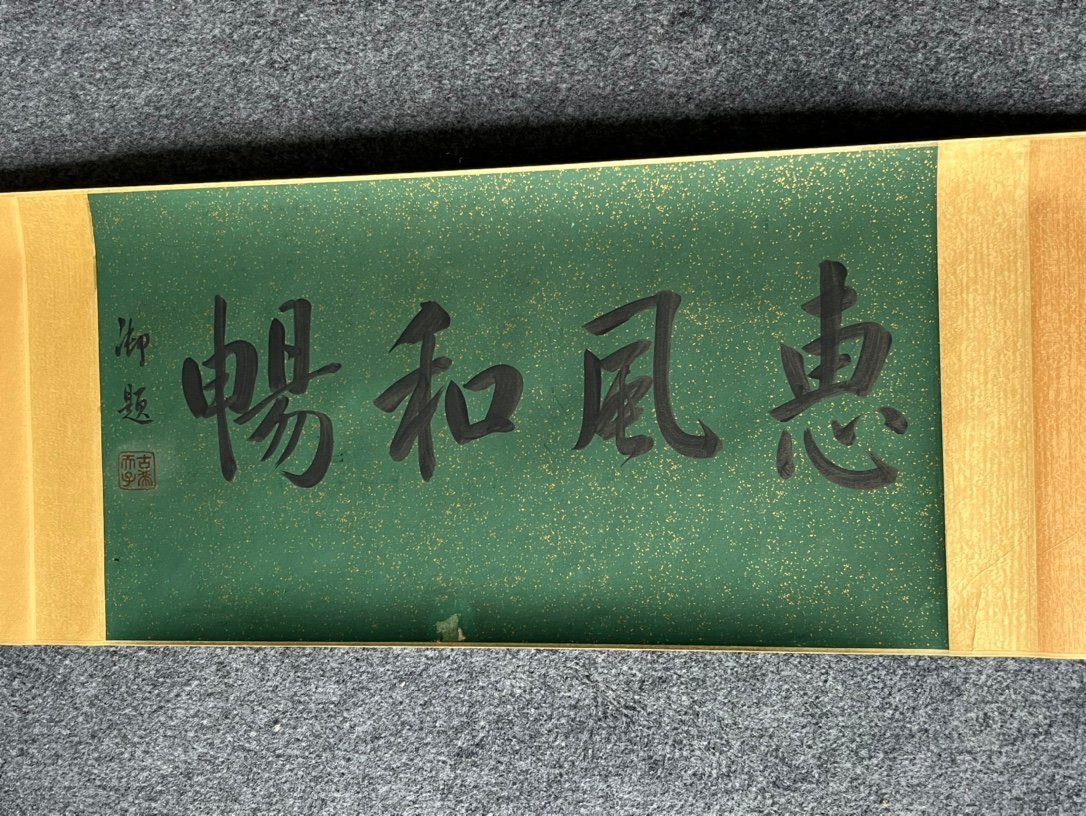 惠風和暢
御題
古希天子